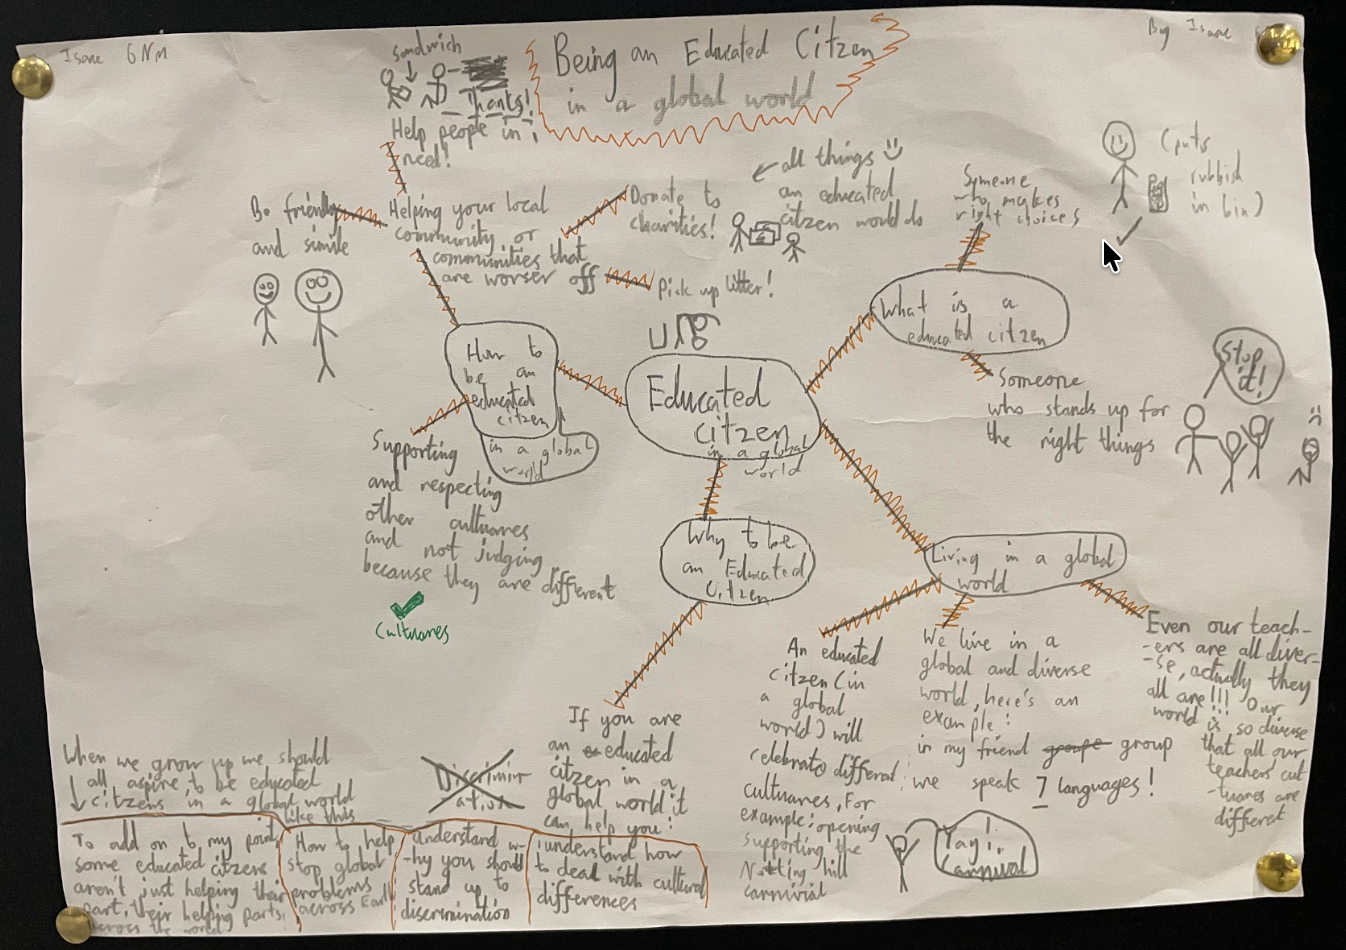 Isaac 6NM
By Isaac
Being an Educated Citzen
in a global world
sandwich
Thanks!
Help people in
need!
Be friendly
and simile
Helping your local
community or
communities that
are worser off
Donate to
charities!
Pick up litter!
← all things
an educated
citzen would do
Someone
who makes
right choices
(puts
rubbish
in bin)
What is a
educated citzen
Someone
who stands up for
the right things
Stop
it!
How to
be an
educated
citzen
in a global
world
Educated
citzen
in a global
world
Supporting
and respecting
other cultuares
and not judging
because they are different
Cultuares
Why to be
an Educated
Citzen
If you are
an educated
citzen in a
global world it
can help you:
Living in a global
world
An educated
citzen (in
a global
world) will
celebrate different
cultuares, For
example: opening
supporting the
Notting hill
carnivial
We live in a
global and diverse
world, here's an
example:
in my friend groupe group
we speak 7 languages!
Yay!
Carnival
Even our teach-
-ers are all diver-
-se, actually they
all are!!! Our
world is so diverse
that all our
teachers' cul-
-tuares are
different
When we grow up we should
all aspire to be educated
citzens in a global world
like this
Discrimin
ation
To add on to my point,
some educated citzens
aren't just helping their
part, their helping parts
across the world!
How to help
stop global
problems
across Earth
understand w-
-hy you should
stand up to
discrimination
understand how
to deal with cultural
differences